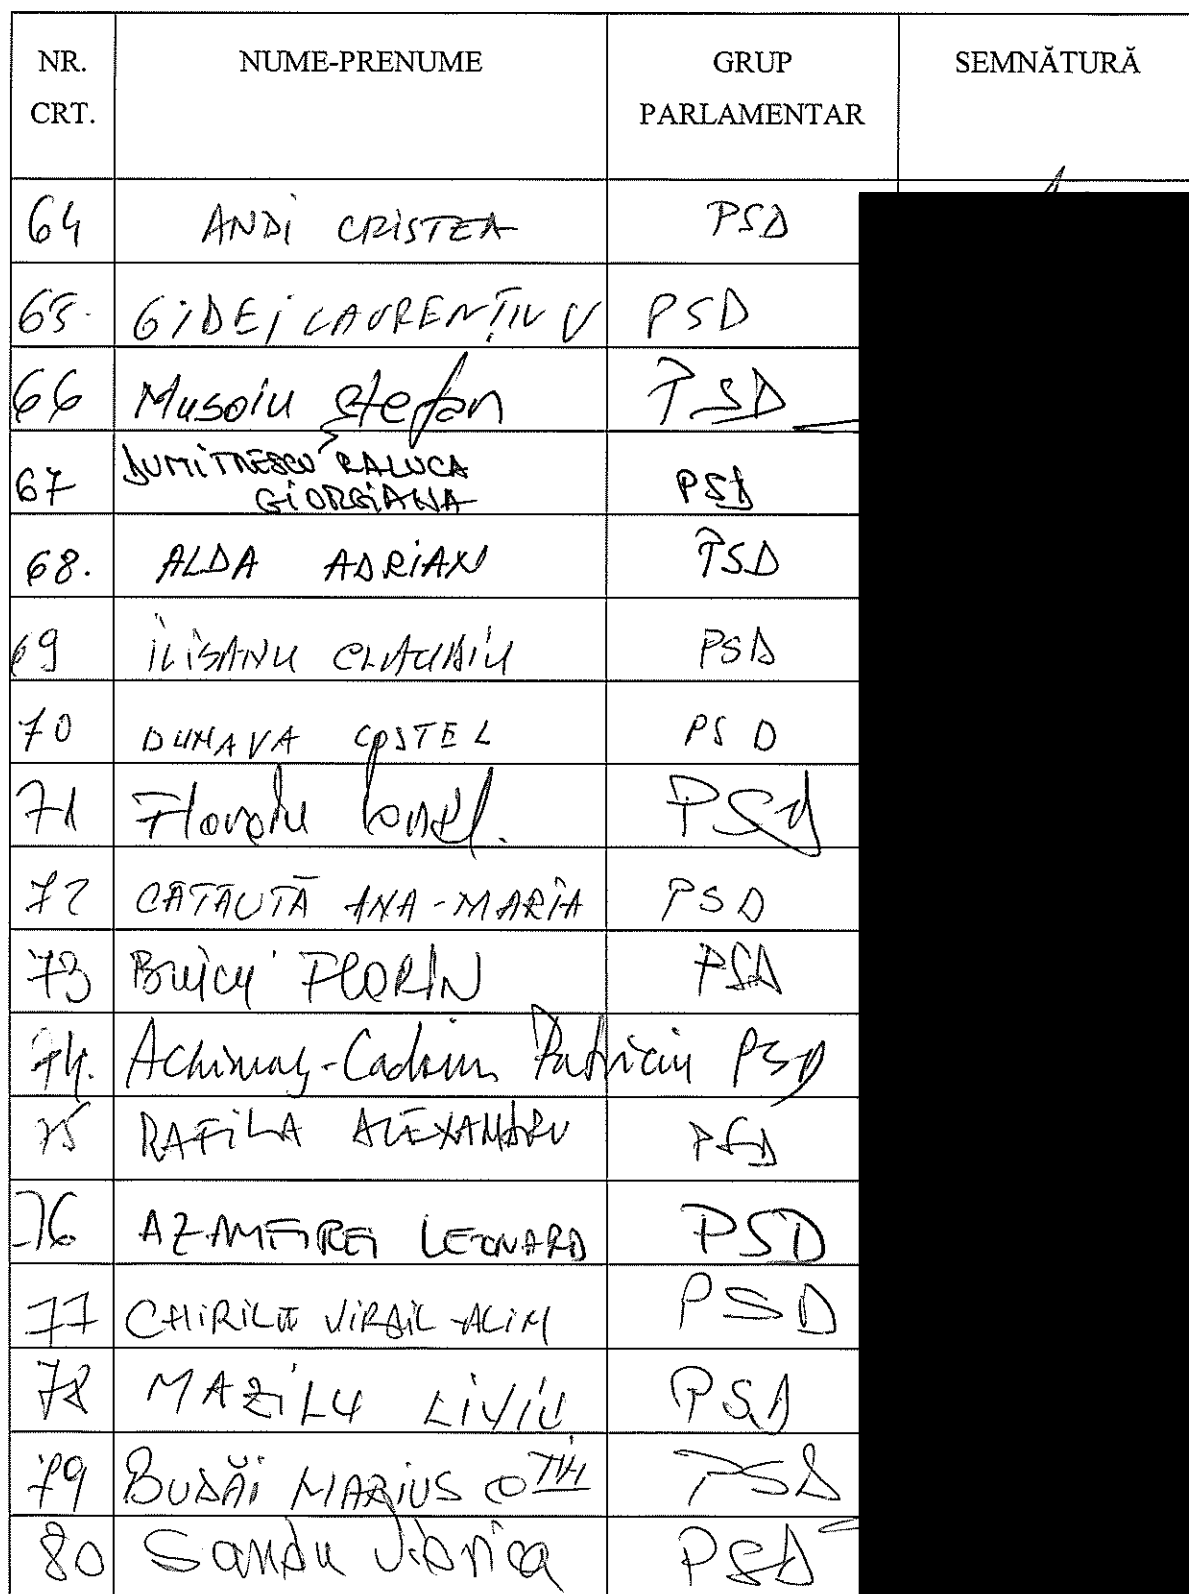 NR. CRT. NUME-PRENUME GRUP PARLAMENTAR SEMNĂTURĂ
64 ANDI CRISTEA PSD
65. GIDEI LAURENȚIU V PSD
66 Musoiu Ștefan PSD
67 DUMITRESCU RALUCA GIORGIANA PSD
68. ALDA ADRIAN PSD
69 ILISANU CLAUDIU PSD
70 DUNAVA COSTEL PSD
71 Floroiu Ionel. PSD
72 CATAUTĂ ANA-MARIA PSD
73 Buicu FLORIN PSD
74. Achimaș-Cadariu Patriciu PSD
75 RAFILA ALEXANDRU PSD
76 AZAMFIREI LEONARD PSD
77 CHIRILĂ VIRGIL-ALIM PSD
78 MAZILU LIVIU PSD
79 BUDĂI MARIUS PSD
80 Sandu Viorica PSD